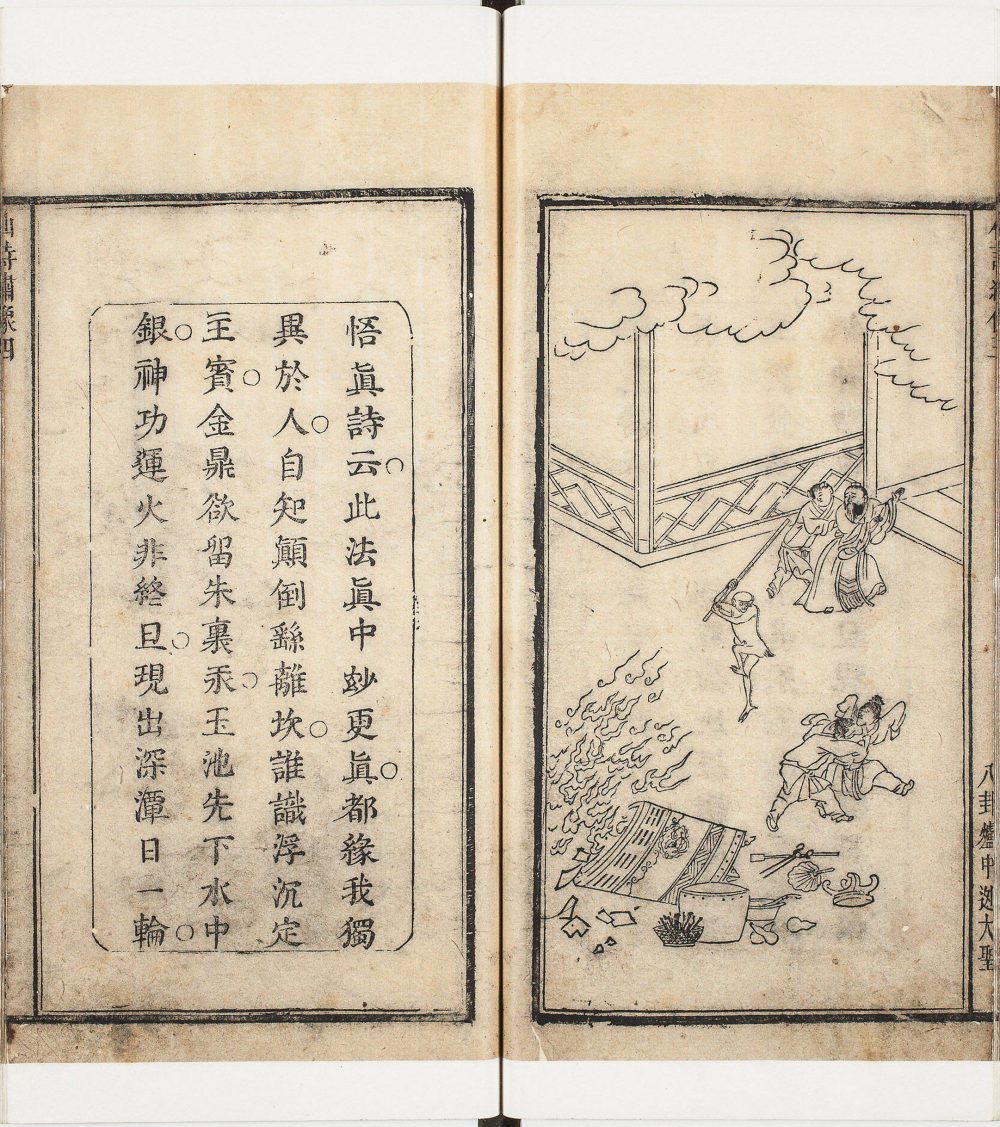 八卦爐中逃大聖
悟眞詩云。此法眞中玅更眞。都緣我獨
異於人。自知顛倒繇離坎。誰識浮沉定
主賓。金鼎欲留朱裏汞。玉池先下水中
銀。神功運火非終旦。現出深潭日一輪。